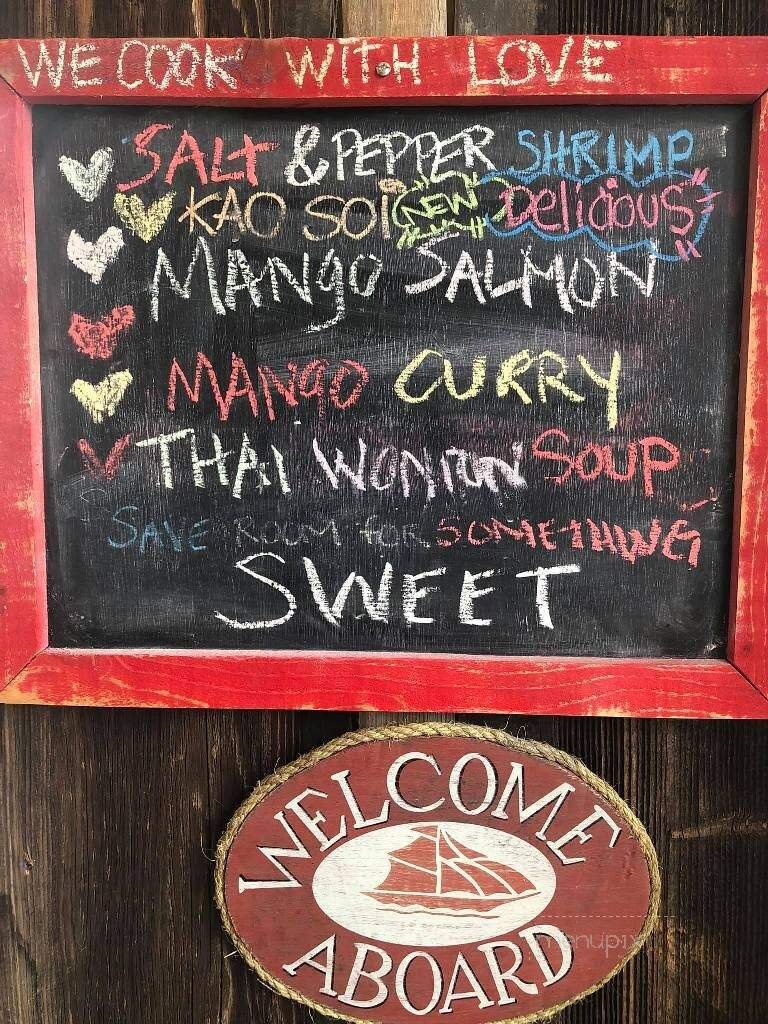 WE COOK WITH LOVE
SALT & PEPPER SHRIMP
KAO SOI NEW Delicious
MANgO SALMON
MANgO CURRY
THAI WONTON SOUP
SAVE ROOM FOR SOMETHING
SWEET
WELCOME
ABOARD
menupix